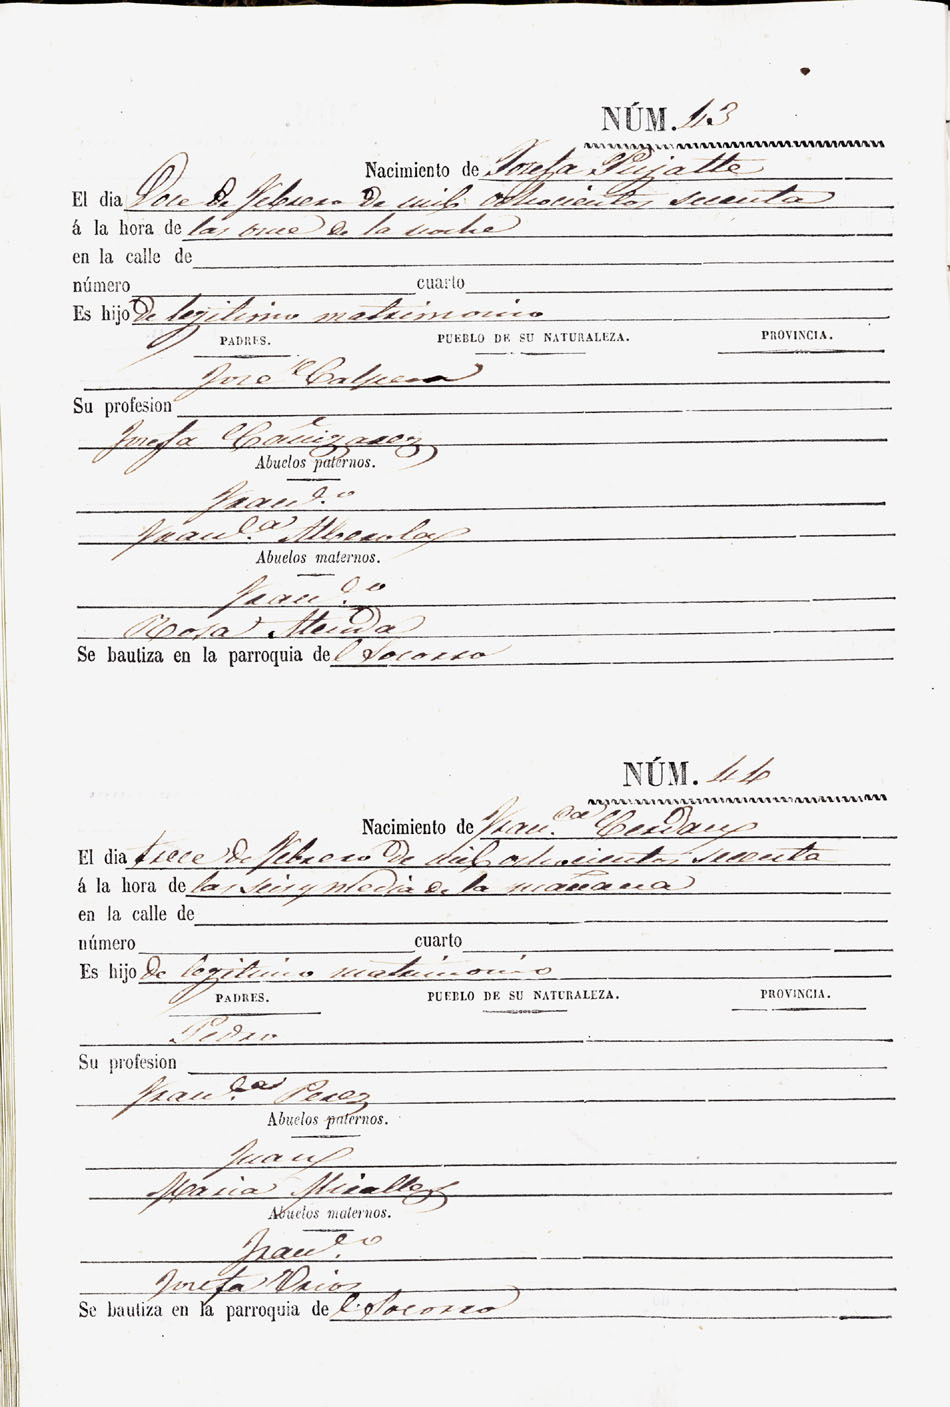 NÚM. 43
Nacimiento de Josefa Pujalte
El dia Doce de Febrero de mil ochocientos sesenta
á la hora de las once de la noche
en la calle de
número cuarto
Es hijo de legitimo matrimonio
PADRES. PUEBLO DE SU NATURALEZA. PROVINCIA.
José
Su profesion
Josefa Cañizares
Abuelos paternos.
Fran.co
Fran.ca
Abuelos maternos.
Fran.co
Rosa
Se bautiza en la parroquia del Socorro
NÚM. 44
Nacimiento de Fran.ca Cerdan
El dia trece de Febrero de mil ochocientos sesenta
á la hora de las seis y media de la mañana
en la calle de
número cuarto
Es hijo de legitimo matrimonio
PADRES. PUEBLO DE SU NATURALEZA. PROVINCIA.
Pedro
Su profesion
Fran.ca Perez
Abuelos paternos.
Juan
Maria Miralles
Abuelos maternos.
Fran.co
Josefa Rios
Se bautiza en la parroquia del Socorro